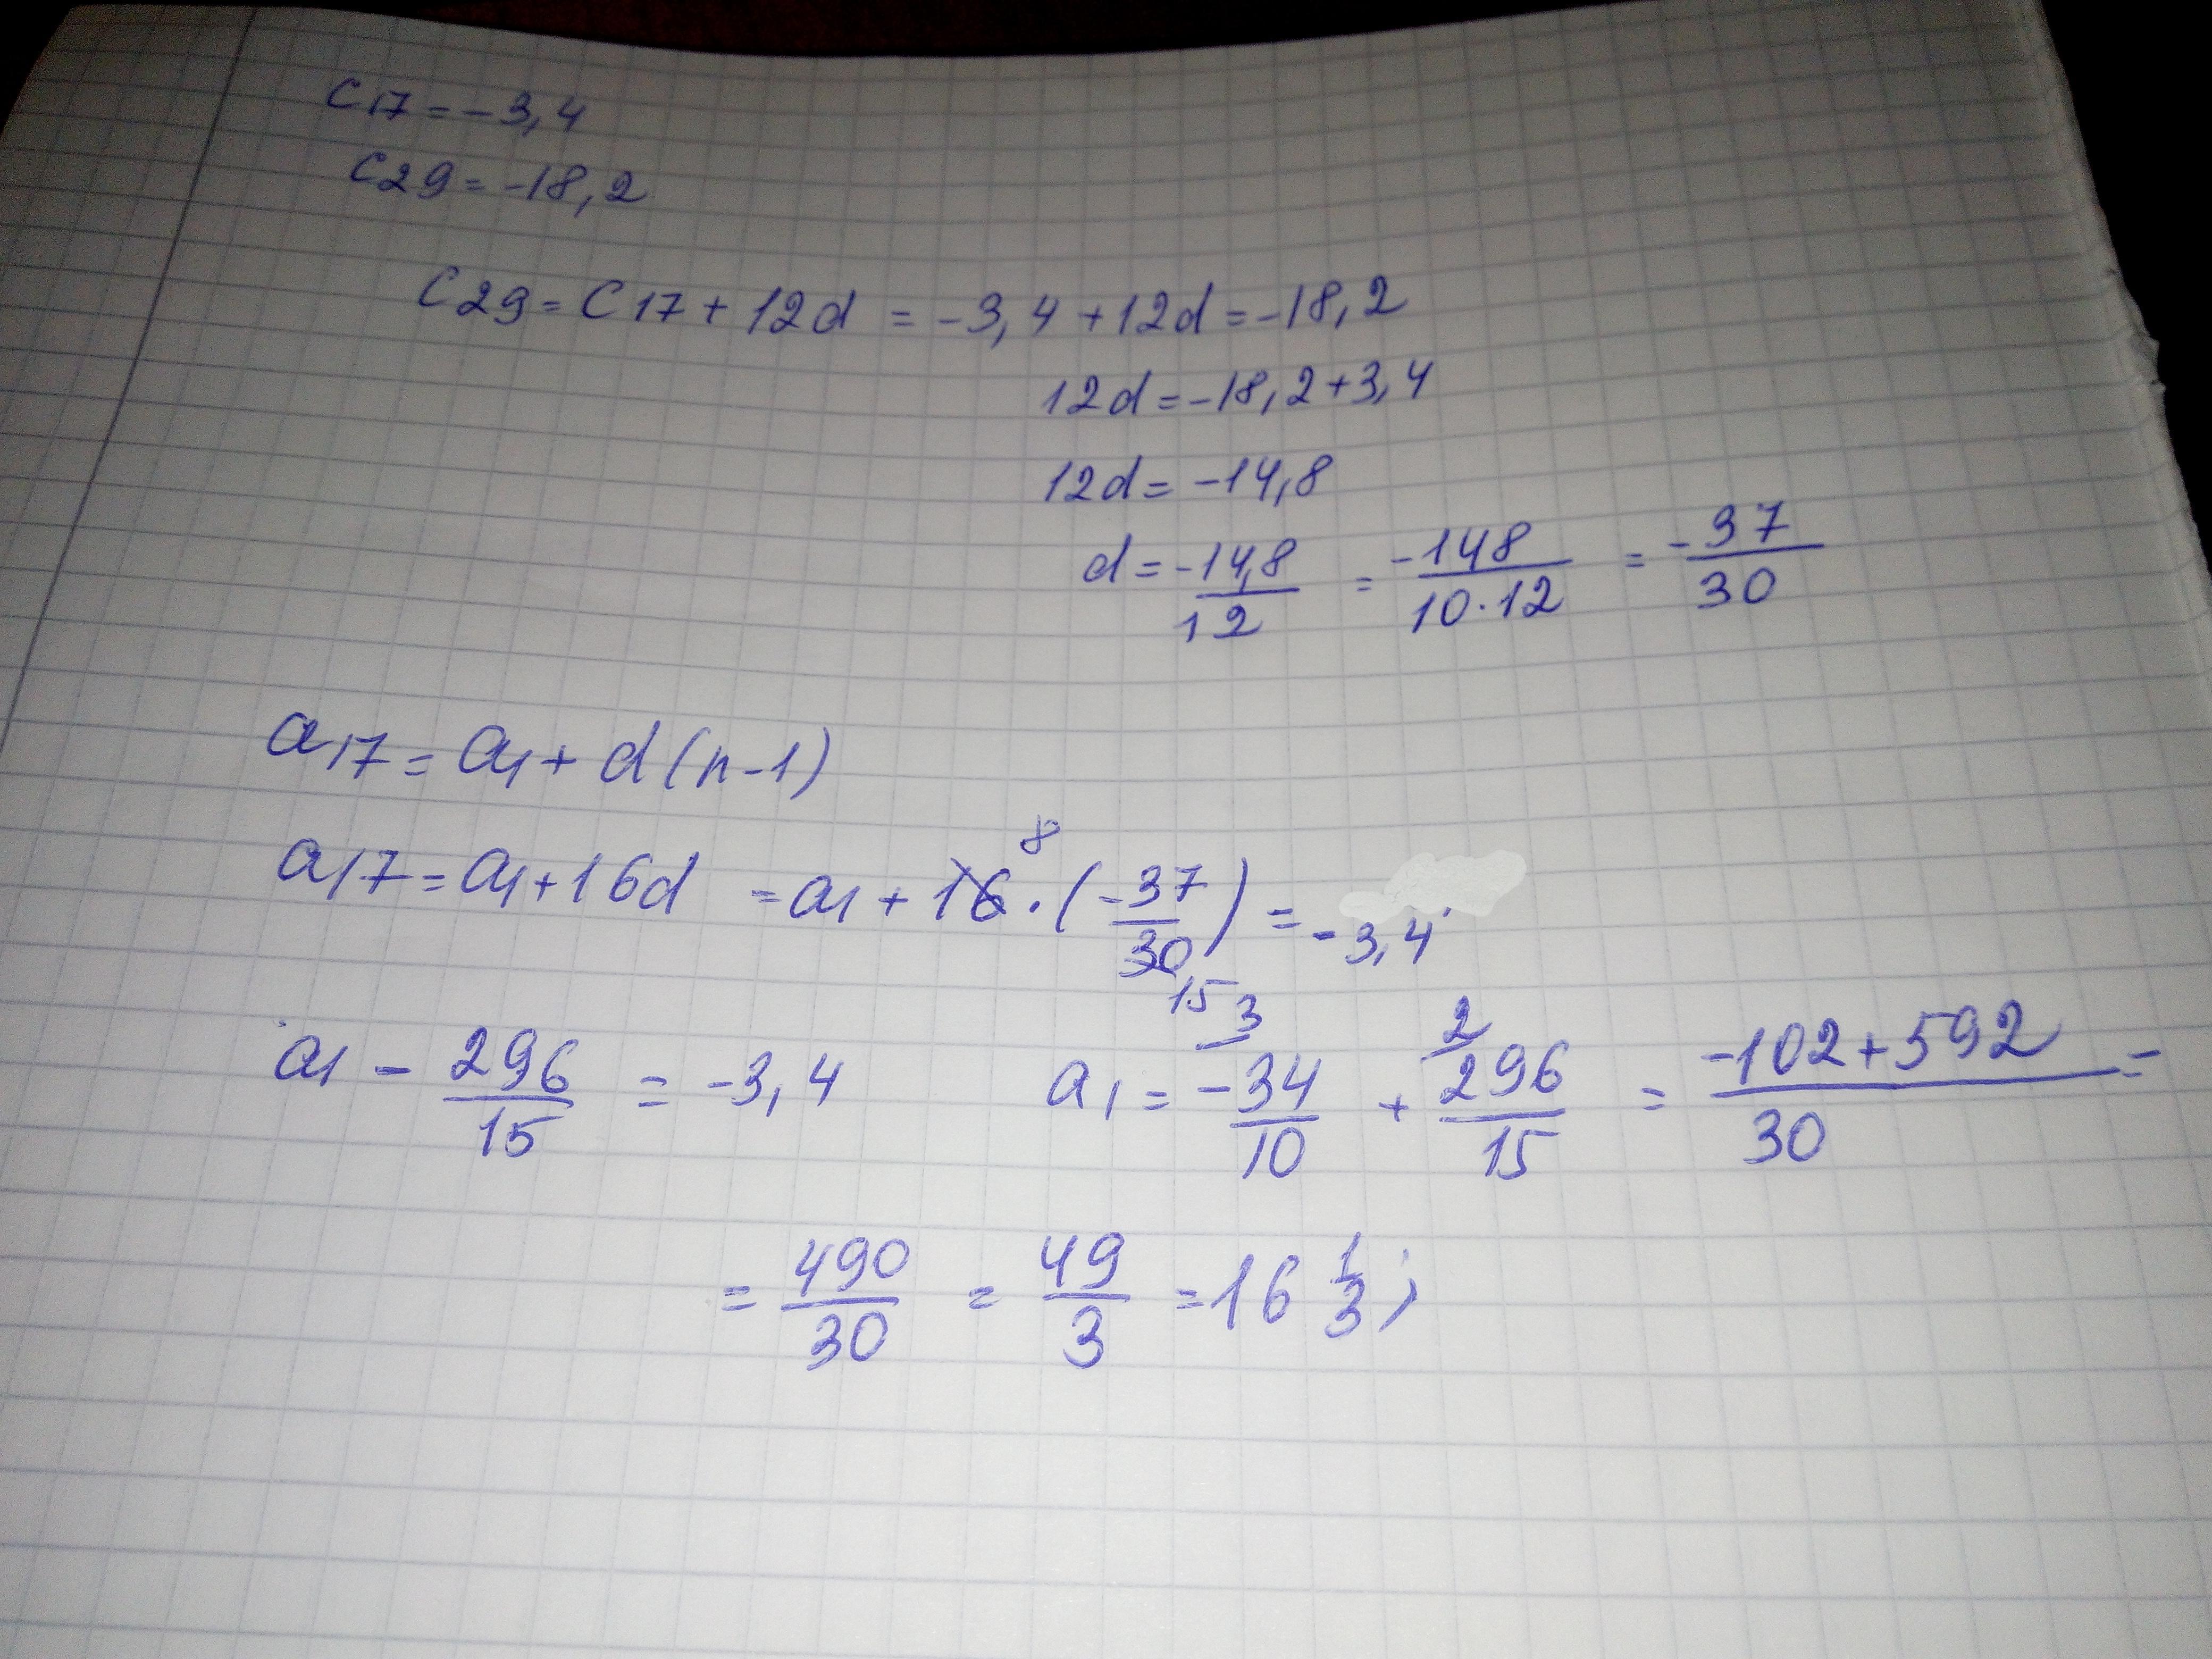 c17 = -3,4
c29 = -18,2
c29 = c17 + 12d = -3,4 + 12d = -18,2
12d = -18,2 + 3,4
12d = -14,8
d = -14,8/12 = -148/10·12 = -37/30
a17 = a1 + d(n-1)
a17 = a1 + 16d = a1 + 16 8 · (-37/30 15) = -3,4
a1 - 296/15 = -3,4 a1 = 3 -34/10 + 2 296/15 = -102+592/30 =
= 490/30 = 49/3 = 16 1/3;